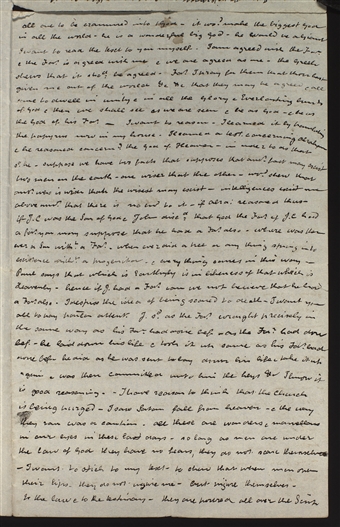 all are to be crammed into 1 God - it wod. make the biggest God
in all the world - he is a wonderful big God - he would be a Giant
I want to read the text to you myself - I am agreed with the Far.
& the Far. is agreed with me & we are agreed as one - the Greek
shews that it shod. be agreed - Far. I pray for them that thou hast
given me out of the world &c &c that they may be agreed & all
come to dwell in unity & in all the Glory & Everlasting burngs
of God & then we shall see as we are seen & be as God - & he as
the God of his Far. - I want to reason - I learned it by translating
the papyrus now in my house - I learned a test. concerning Abraham
& he reasoned concerng the God of Heaven - in order to do that
sd. he - suppose we have two facts that supposes that anotr. fact may exist
two men on the earth - one wiser than the other - wod. shew that
anotr. who is wiser than the wisest may exist - intelligences exist one
above anotr. that there is no end to it - if Abra: reasoned thus -
if J.C. was the Son of God & John discd. that God the Far. of J.C had
a far. you may suppose that he had a Far. also - where was ther
ever a Son witht. a Far. - where ever did a tree or any thing spring into
existence witht. a progenitor - & every thing comes in this way -
Paul says that which is Earthly is in likeness of that which is
Heavenly - hence if J. had a Far. can we not believe that he had
a Far. also - I despise the idea of being scared to death - I want you
all to pay parlar attent. J. sd. as the Far. wrought precisely in
the same way as his Far. had done bef. - as the Far. had done
bef. - he laid down his life & took it up same as his Far. had
done bef. - he did as he was sent to lay down his life & take it up
again & was then committed unto him the keys &c I know it
is good reasoning - - I have reason to think that the Church
is being purged - I saw Satan fall from heaven - & the way
they ran was a caution. all these are wonders & marvellous
in our eyes in these last days - so long as men are under
the law of God they have no fears, they do not scare themselves
- I want to stick to my text - to shew that when men open
their lips - they do not injure me - but injure themselves -
To the law & to the testimony - they are poured all over the Scrip